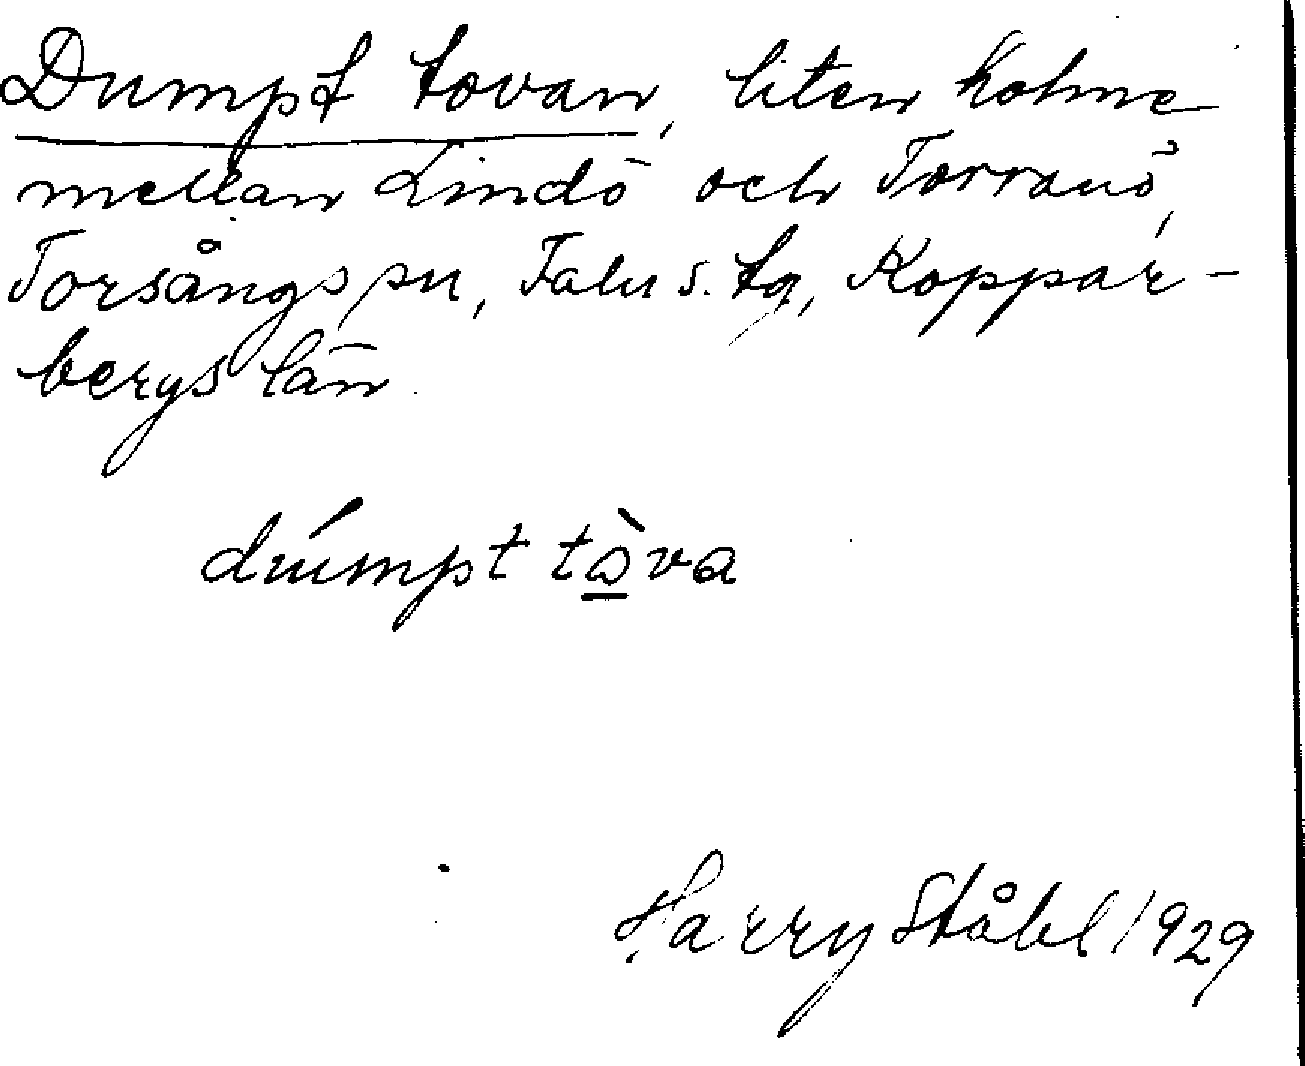 Dumpt tovan, liten holme
mellan Lindö och Torranö,
Torsångs sn, Falu s. tg, Koppar-
bergs län.
dúmpt tòva
Harry Ståhl 1929